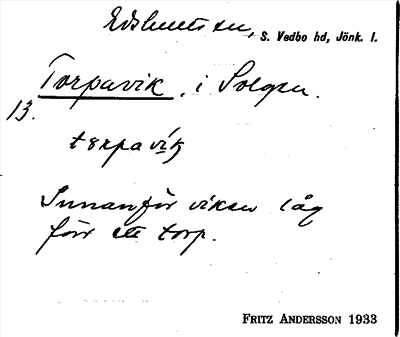 Edshults sn, S. Vedbo hd, Jönk. l.
Torpavik, i Solgen.
13.
tɛrpavik
Innanför viken låg
förr ett torp.
FRITZ ANDERSSON 1933